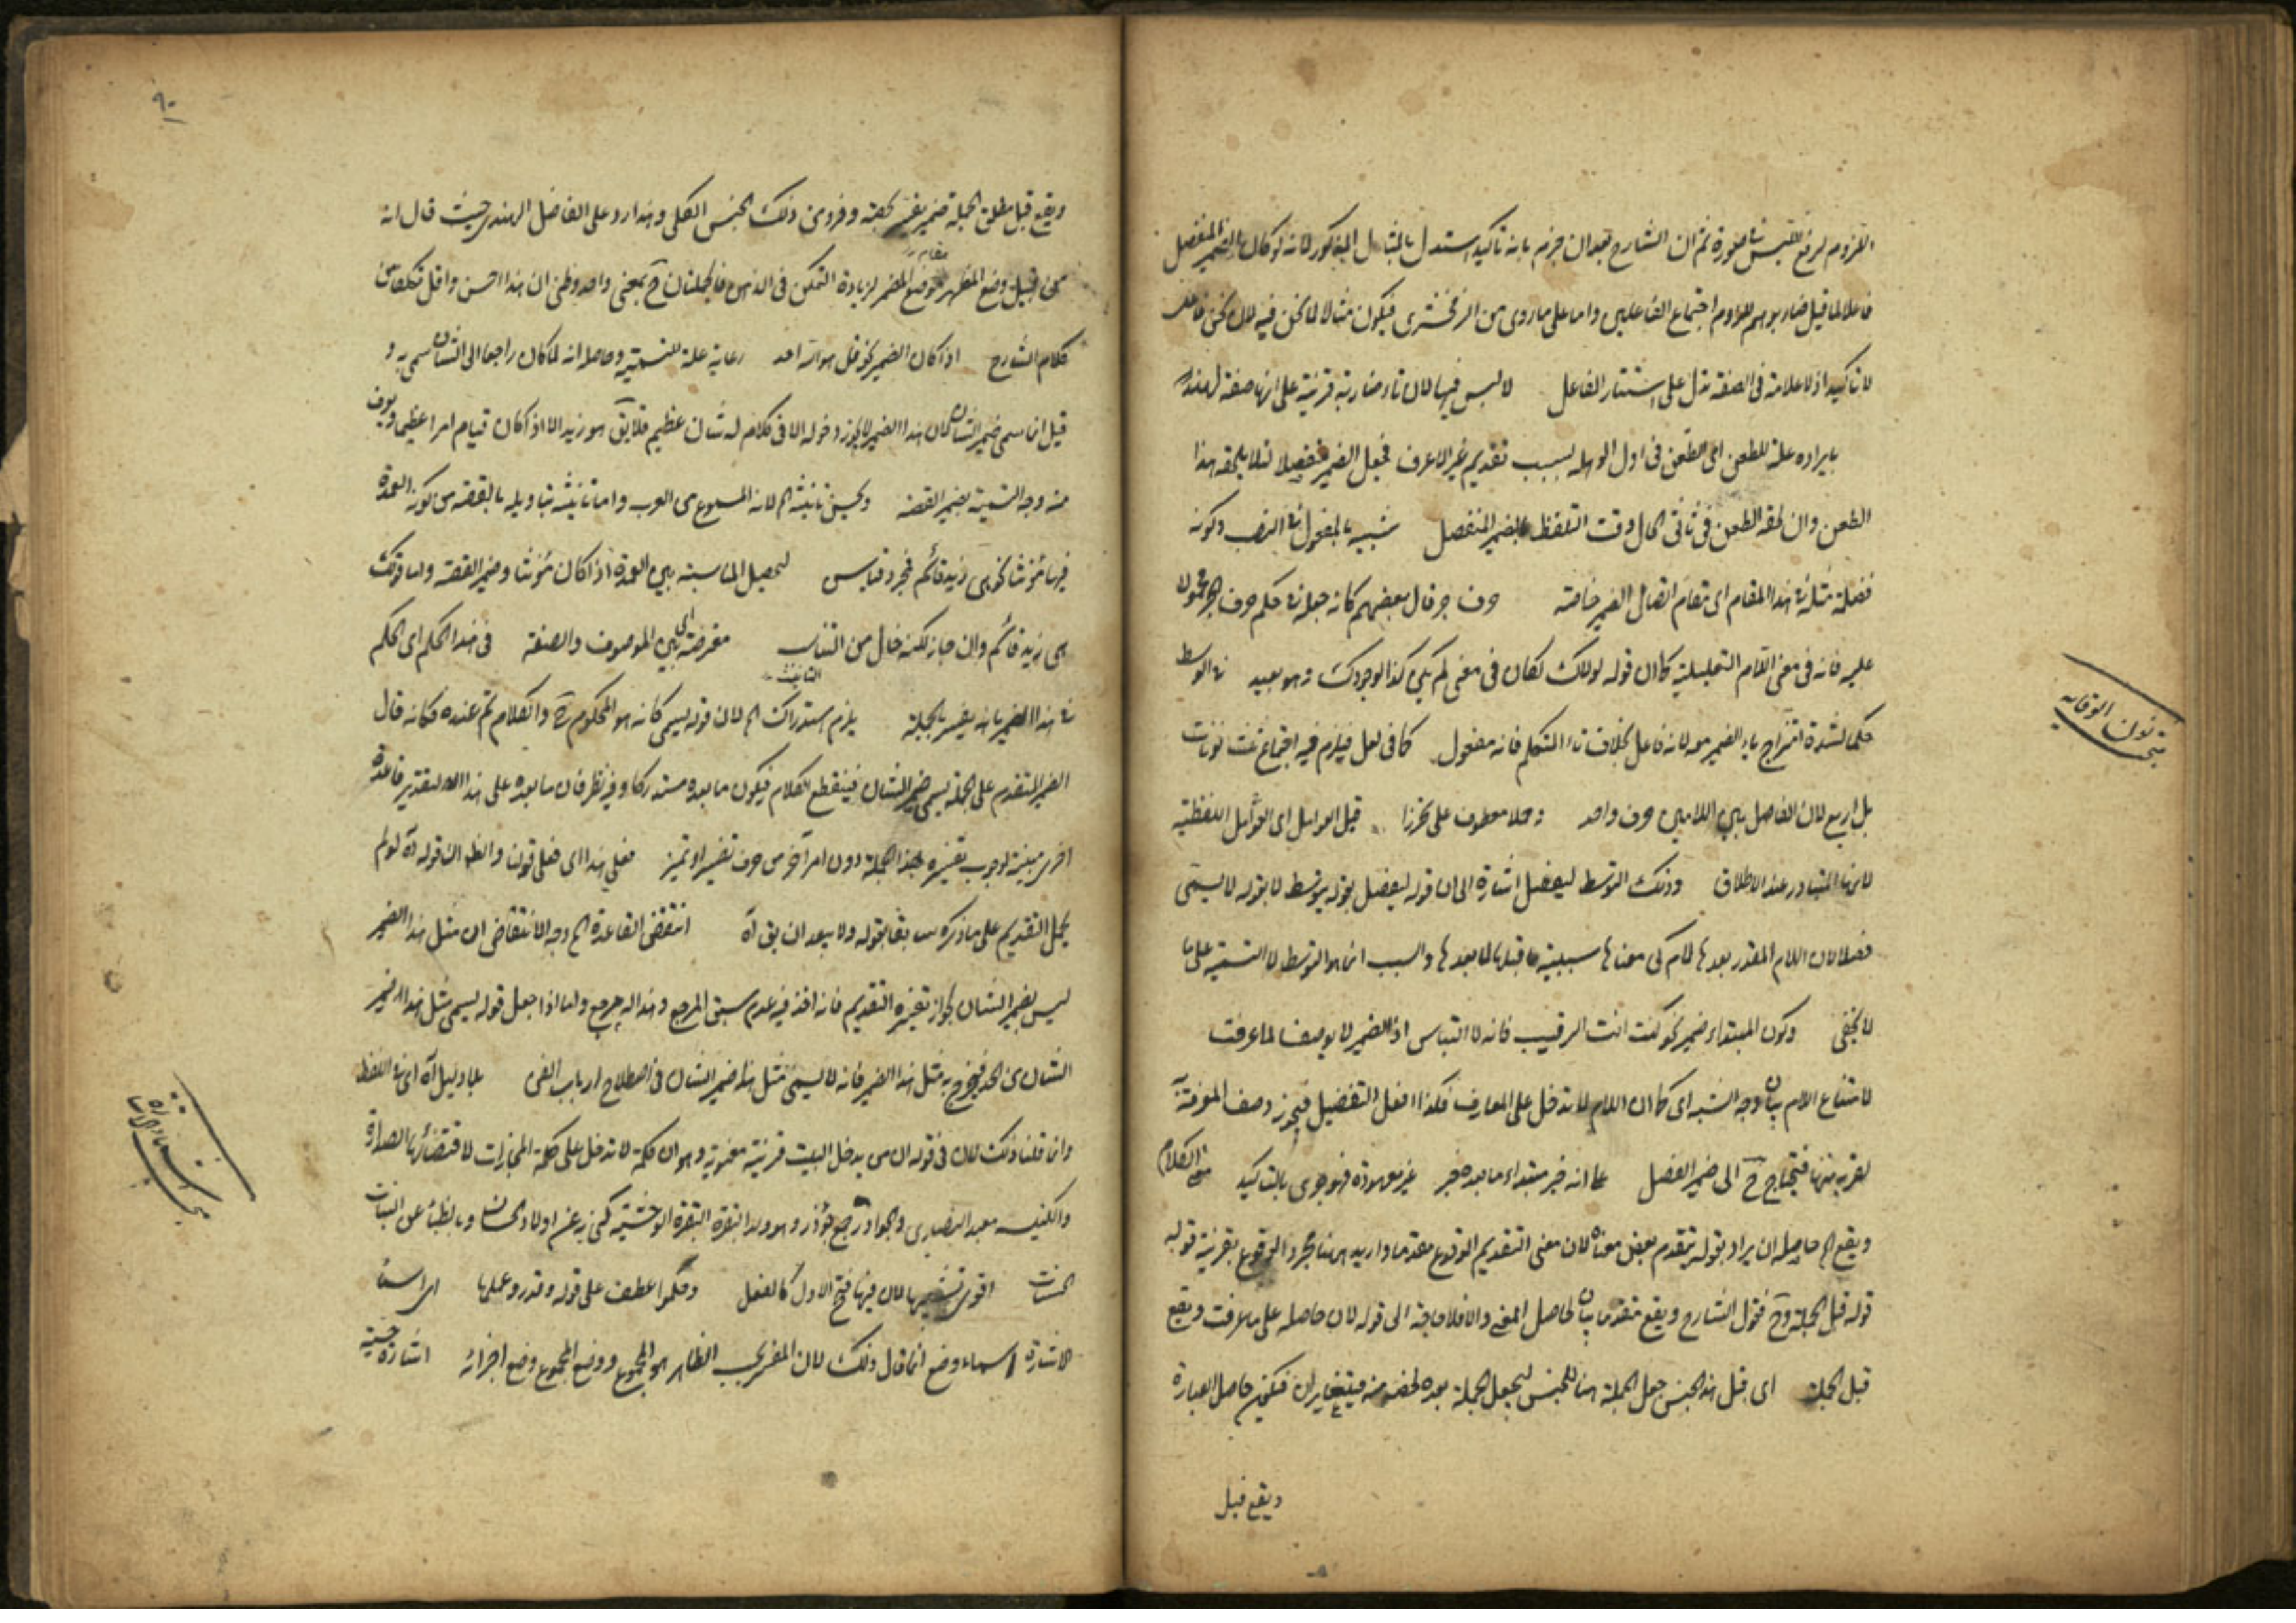 اللزوم لرفع اللبس في صورة ثم ان الشارح بعد ان جزم بانه تاكيد استدل بالمثال المذكور لانه لو كان الضمير المنفصل
فاعلا لما قيل ضاربوهم للزوم اجتماع الفاعلين واما على ما روى من الزمخشرى فيكون مثالا لما نحن فيه لان نحن فاعل
لا تاكيد اذ لا علامة فى الصفة تدل على استتار الفاعل لا لبس فيها لان تاء ضاربة قرينة على انها صفة لهند
بايراده علة للطعن اى الطعن فى اول الوهلة بسبب تقديم غير الاعرف فجعل الضمير منفصلا لئلا يلحقه هذا
الطعن وان لحقه الطعن فى ثانى الحال وقت التلفظ بالضمير المنفصل شبيه بالمفعول في النصب وكونه
فضلة مثله في هذا المقام اى مقام اتصال الضمير خاصة حرف جر قال بعضهم كانه جعله في حكم حرف الجر
عليه فانه فى معنى اللام التعليلية كما ان قوله لولاك لكان فى معنى لم يكن كذا لوجودك وهو بعيد في الوسط
حكما لشدة امتزاج ياء الضمير معه لانه فاعل بخلاف ياء المتكلم فانه مفعول كما فى لعل فيلزم فيه اجتماع ثلث نونات
بل اربع لان الفاصل بين اللامين حرف واحد ومحلا معطوف على تحرزا قبل العوامل اى العوامل اللفظية
لانها المتبادر عند الاطلاق وذلك التوسط ليفصل اشارة الى ان قوله ليفصل بقوله يتوسط لا بقوله لا يسمى
فصلا لان اللام المقدر بعدها لام كى معناها سببية ما قبلها لما بعدها والسبب انما هو التوسط لا التسمية على ما
لا يخفى وكون المبتداء ضمير نحو كنت انت الرقيب فانه لا التباس اذ الضمير لا يوصف لما عرفت
لامتناع اللام بيان وجه الشبه اى كما ان اللام لا تدخل على المعارف فكذا افعل التفضيل فيجوز وصف المعرفة
لقربه منها فيحتاج ح الى ضمير الفصل على انه خبر مبتداء ما بعده خبر غير معهودة فهو جرى بالتاكيد
ويقع الخ حاصله ان يراد بقوله يتقدم بعض معناه لان معنى التقديم الوقوع مقدما واريد هنا مجرد الوقوع بقرينة قوله
قوله قبل الجملة وح فقول الشارح ويقع متقدما بيان لحاصل المعنى والا فلا حاجة الى قوله لان حاصله على ما عرفت ويقع
قبل الجملة اى قبل هذا الجنس جعل الجملة هنا للجنس ليجعل الجملة بعده لحصر منه فيتغايران فيكون حاصل العبارة
ويقع قبل
نون الوقاية
٩٠
ويقع قبل مطلق الجملة ضمير يفسر بحصة وفرد من ذلك الجنس الكلى وهذا رد على الفاضل الهندى حيث قال انه
من قبيل وضع المظهر موضع المضمر لزيادة التمكن فى الذهن فالجملتان ح بمعنى واحد وظنى ان هذا احسن واقل تكلفا من
كلام الشارح اذا كان الضمير نحو قل هو الله احد رعاية علة للتسمية وحاصله انه لما كان راجعا الى الشان سمى به و
قيل انما سمى ضمير الشان لان هذا الضمير لا يجوز دخوله الا فى كلام له شان عظيم فلا يق هو زيد الا اذا كان قيام امرا عظيما ويعرف
منه وجه التسمية بضمير القصة ويحسن تانيثه الخ لانه المسموع من العرب واما تانيثه بتاويله بالقصة من كون العمدة
فيها مؤنثا نحو هى زيد قائم فمجرد قياس لتحصيل المناسبة بين العمدة اذا كان مؤنثا وضمير القصة واما قولك
هى زيد قائم وان جاز لكنه خال من التناسب معترضة بين الموصوف والصفة فى هذا الحكم اى الحكم
في هذا الضمير بانه يفسر بالجملة يلزم استدراك الخ لان قوله يسمى كانه هو المحكوم به والكلام تم عنده فكانه قال
الضمير المتقدم على الجملة يسمى ضمير الشان فينقطع الكلام فيكون ما بعده مستدركا وفيه نظر فان ما بعده على هذا التقدير قاعدة
اخرى مبينة لوجوب تفسيره بهذا الجملة دون امر آخر من حرف تفسير او تميز فعلى هذا اى فعلى قوله والظ ان قوله آه لو لم
يحمل التقديم على ما ذكره سابقا بقوله ولا يبعد ان يق آه انتقض القاعدة الخ وجه الانتقاض ان مثل هذا الضمير
ليس بضمير الشان لجواز تفسيره التقديم فانه اخذ فيه عدم سبق المرجع وهذا له مرجع واما اذا جعل قوله يسمى مثل هذا الضمير
الشان من الحد فيخرج به مثل هذا الضمير فانه لا يسمى مثل هذا ضمير الشان فى اصطلاح ارباب الفن بلا دليل آه اى في اللفظ
وانما قلنا ذلك لان فى قوله ان من يدخل البيت قرينة معنوية وهو ان كلمة لا تدخل على كلمة المجازات لاقتضائها الصدارة
والكنيسة معبد النصارى والجوآذر جمع جؤذر وهو ولد البقرة البقرة الوحشية كنى به عن اولاد الحسان وبالظباء عن البنات
الحسنات اقوى تشبيها لان فيها فتح الاول كالفعل وحكما عطف على قوله وقدر وعملها
الاشارة اسماء وضع انما قال ذلك لان المعرب الظاهر هو المجموع ووضع المجموع وضع اجزائه اشارة حسية
بحث اسماء الاشارة